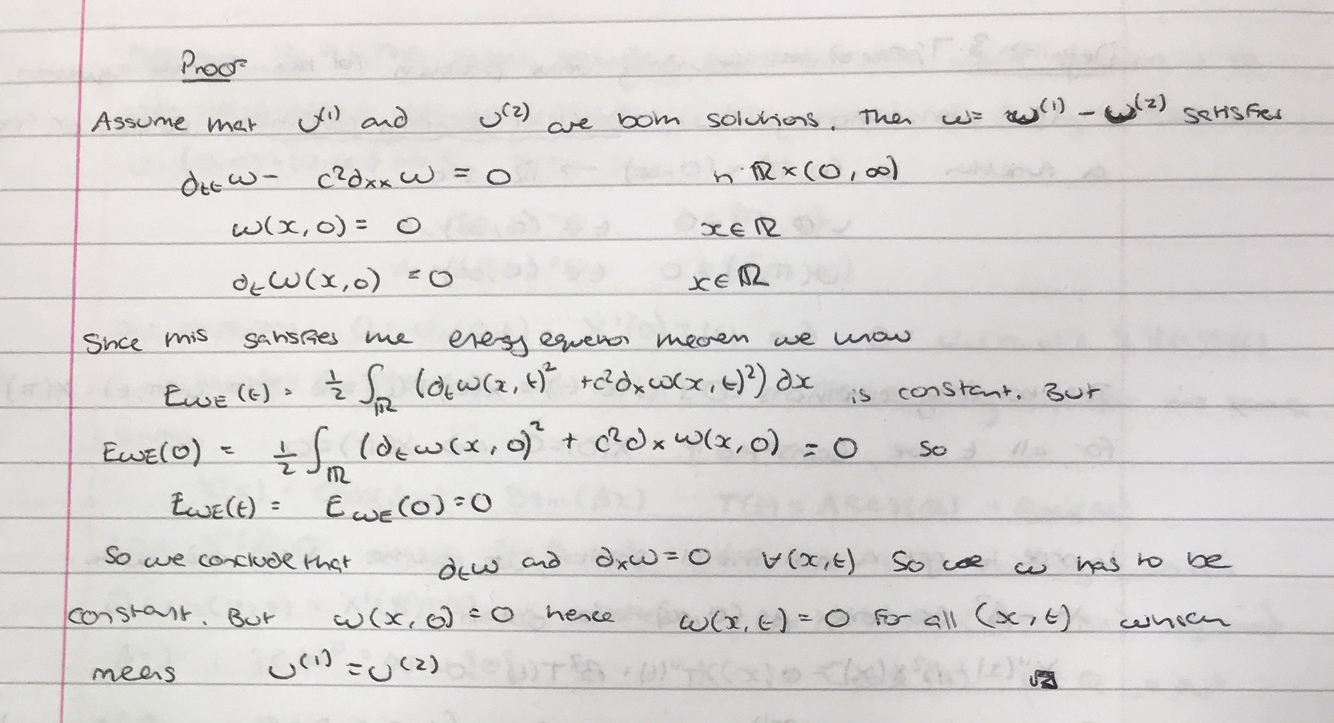 Proof
Assume that u⁽¹⁾ and u⁽²⁾ are both solutions. Then ω = ω⁽¹⁾ - ω⁽²⁾ satisfies
∂ₜₜω - c²∂ₓₓω = 0 in ℝ×(0,∞)
ω(x,0) = 0 x∈ℝ
∂ₜω(x,0) = 0 x∈ℝ
Since this satisfies the energy equation theorem we know
E_WE(t) = ½∫_ℝ (∂ₜω(x,t)² + c²∂ₓω(x,t)²)dx is constant. But
E_WE(0) = ½∫_ℝ (∂ₜω(x,0)² + c²∂ₓω(x,0) = 0 so
E_WE(t) = E_WE(0) = 0
So we conclude that ∂ₜω and ∂ₓω = 0 ∀(x,t) So ω has to be
constant. But ω(x,0) = 0 hence ω(x,t) = 0 for all (x,t) which
means u⁽¹⁾ = u⁽²⁾